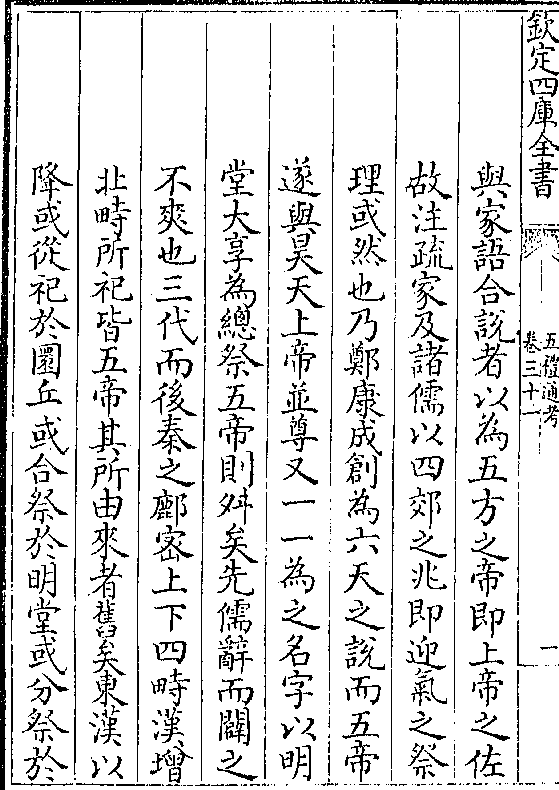 欽定四庫全書
五禮通考
卷三十一
一
與家語合說者以為五方之帝即上帝之佐
故注疏家及諸儒以四郊之兆即迎氣之祭
理或然也乃鄭康成創為六天之說而五帝
遂與昊天上帝並尊又一一為之名字以明
堂大享為總祭五帝則舛矣先儒辭而闢之
不爽也三代而後秦之鄜密上下四畤漢增
北畤所祀皆五帝其所由來者舊矣東漢以
降或從祀於圜丘或合祭於明堂或分祭於